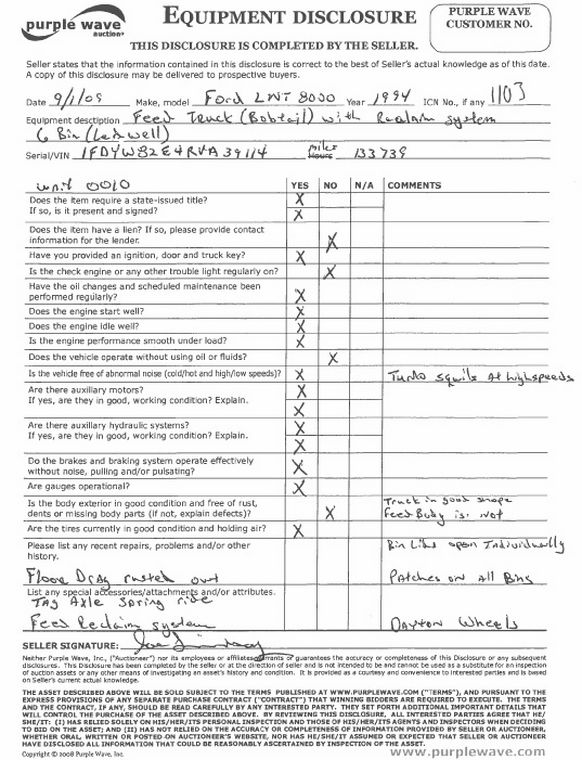 purple wave
auction
EQUIPMENT DISCLOSURE
PURPLE WAVE
CUSTOMER NO.
THIS DISCLOSURE IS COMPLETED BY THE SELLER.
Seller states that the information contained in this disclosure is correct to the best of Seller's actual knowledge as of this date.
A copy of this disclosure may be delivered to prospective buyers.
Date 9/1/09 Make, model Ford LNT 8000 Year 1994 ICN No., if any 1103
Equipment desctiption Feed Truck (Bobtail) with Reclaim system
6 Bin (Ledwell)
Serial/VIN 1FDYW82E4RVA39114 miles Hours 133739
unit 0010 YES NO N/A COMMENTS
Does the item require a state-issued title? X
If so, is it present and signed? X
Does the item have a lien? If so, please provide contact
information for the lender. X
Have you provided an ignition, door and truck key? X
Is the check engine or any other trouble light regularly on? X
Have the oil changes and scheduled maintenance been
performed regularly? X
Does the engine start well? X
Does the engine idle well? X
Is the engine performance smooth under load? X
Does the vehicle operate without using oil or fluids? X
Is the vehicle free of abnormal noise (cold/hot and high/low speeds)? X Turbo squils At highspeeds
Are there auxiliary motors? X
If yes, are they in good, working condition? Explain. X
Are there auxiliary hydraulic systems? X
If yes, are they in good, working condition? Explain. X
Do the brakes and braking system operate effectively
without noise, pulling and/or pulsating? X
Are gauges operational? X
Is the body exterior in good condition and free of rust, Truck in good shape
dents or missing body parts (if not, explain defects)? X Feed Body is not
Are the tires currently in good condition and holding air? X
Please list any recent repairs, problems and/or other Bin Lids open Individually
history.
Floor Drag rusted out Patches on All Bins
List any special accessories/attachments and/or attributes.
Tag Axle Spring ride
Feed Reclaim system Dayton Wheels
SELLER SIGNATURE:
Neither Purple Wave, Inc., ("Auctioneer") nor its employees or affiliates warrants or guarantees the accuracy or completeness of this Disclosure or any subsequent
disclosures. This Disclosure has been completed by the seller or at the direction of seller and is not intended to be and cannot be used as a substitute for an inspection
of auction assets or any other means of investigating an asset's history and condition. It is provided as a courtesy and convenience to interested parties and is based
on Seller's current actual knowledge.
THE ASSET DESCRIBED ABOVE WILL BE SOLD SUBJECT TO THE TERMS PUBLISHED AT WWW.PURPLEWAVE.COM ("TERMS"), AND PURSUANT TO THE
EXPRESS PROVISIONS OF ANY SEPARATE PURCHASE CONTRACT ("CONTRACT") THAT WINNING BIDDERS ARE REQUIRED TO EXECUTE. THE TERMS
AND THE CONTRACT, IF ANY, SHOULD BE READ CAREFULLY BY ANY INTERESTED PARTY. THEY SET FORTH ADDITIONAL IMPORTANT DETAILS THAT
WILL CONTROL THE PURCHASE OF THE ASSET DESCRIBED ABOVE. BY REVIEWING THIS DISCLOSURE, ALL INTERESTED PARTIES AGREE THAT HE/
SHE/IT: (I) HAS RELIED SOLELY ON HIS/HER/ITS PERSONAL INSPECTION AND THOSE OF HIS/HER/ITS AGENTS AND INSPECTORS WHEN DECIDING
TO BID ON THE ASSET; AND (II) HAS NOT RELIED ON THE ACCURACY OR COMPLETENESS OF INFORMATION PROVIDED BY SELLER OR AUCTIONEER,
WHETHER ORAL, WRITTEN OR POSTED ON AUCTIONEER'S WEBSITE, NOR HAS HE/SHE/IT ASSUMED OR EXPECTED THAT SELLER OR AUCTIONEER
HAVE DISCLOSED ALL INFORMATION THAT COULD BE REASONABLY ASCERTAINED BY INSPECTION OF THE ASSET.
Copyright © 2008 Purple Wave, Inc.
www.purplewave.com